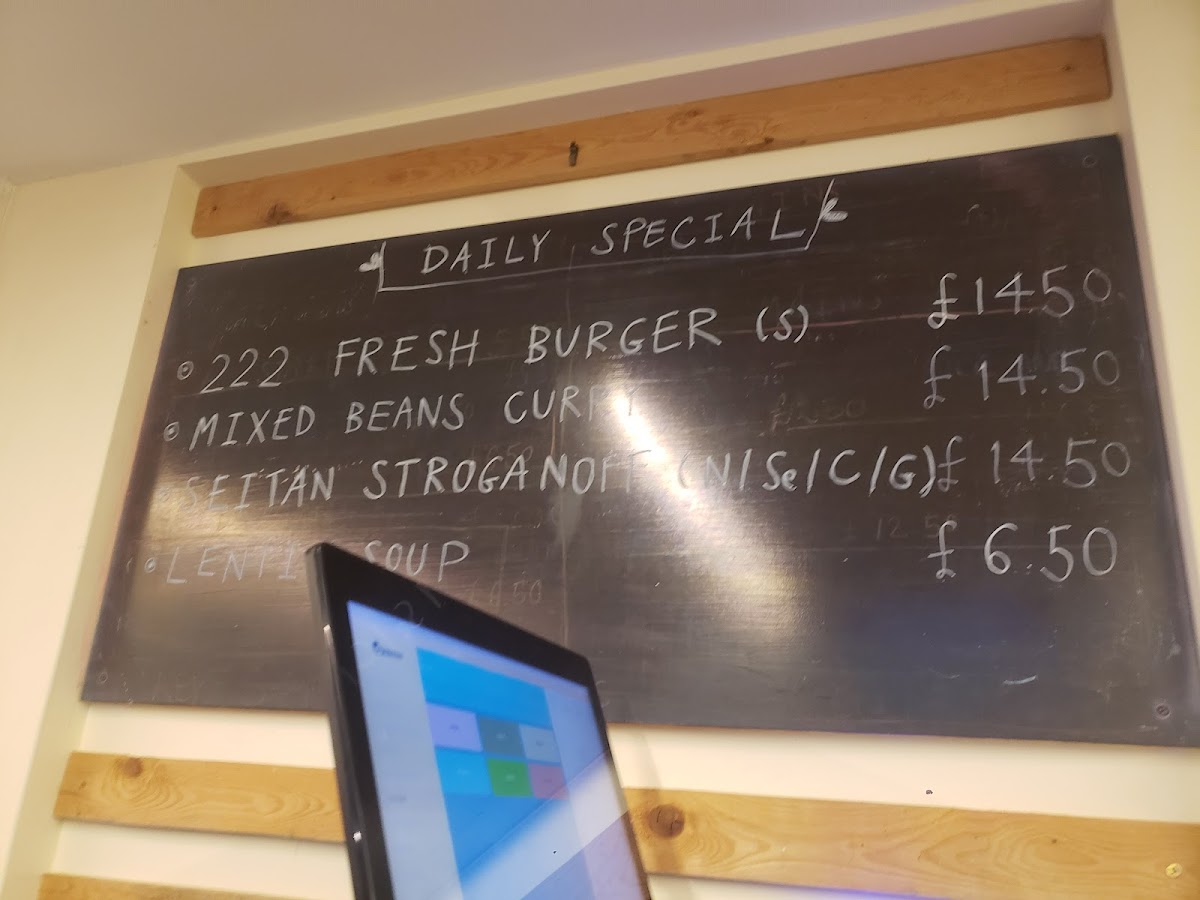 DAILY SPECIAL
222 FRESH BURGER (S) £14.50
MIXED BEANS CURRY £14.50
SEITAN STROGANOFF (N/Se/C/G) £14.50
LENTIL SOUP £6.50